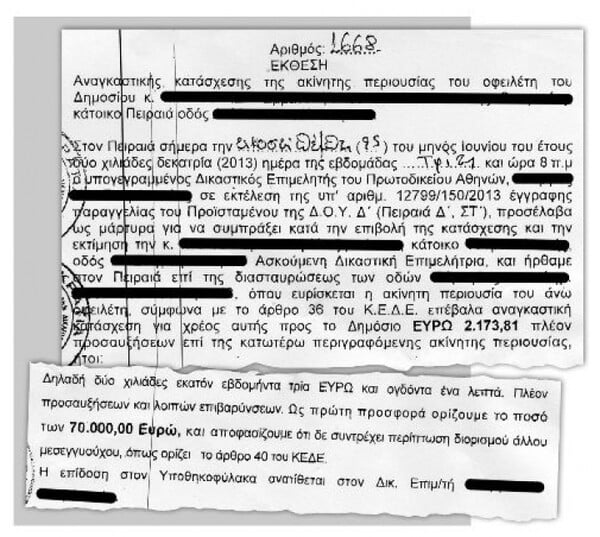 Αριθμός: 1668
ΕΚΘΕΣΗ
Αναγκαστικής κατάσχεσης της ακίνητης περιουσίας του οφειλέτη του
Δημοσίου κ.
κάτοικο Πειραιά οδός
Στον Πειραιά σήμερα την είκοσι πέμπτη (25) του μηνός Ιουνίου του έτους
δύο χιλιάδες δεκατρία (2013) ημέρα της εβδομάδας ....Τρίτη. και ώρα 8 π.μ
ο υπογεγραμμένος Δικαστικός Επιμελητής του Πρωτοδικείου Αθηνών,
σε εκτέλεση της υπ' αριθμ. 12799/150/2013 έγγραφης
παραγγελίας του Προϊσταμένου της Δ.Ο.Υ. Δ΄ (Πειραιά Δ΄, ΣΤ΄), προσέλαβα
ως μάρτυρα για να συμπράξει κατά την επιβολή της κατάσχεσης και την
εκτίμηση την κ. κάτοικο
οδός Ασκούμενη Δικαστική Επιμελήτρια, και ήρθαμε
στον Πειραιά επί της διασταυρώσεως των οδών
, όπου ευρίσκεται η ακίνητη περιουσία του άνω
οφειλέτη, σύμφωνα με το άρθρο 36 του Κ.Ε.Δ.Ε. επέβαλα αναγκαστική
κατάσχεση για χρέος αυτής προς το Δημόσιο ΕΥΡΩ 2.173,81 πλέον
προσαυξήσεων επί της κατωτέρω περιγραφόμενης ακίνητης περιουσίας,
ήτοι:
Δηλαδή δύο χιλιάδες εκατόν εβδομήντα τρία ΕΥΡΩ και ογδόντα ένα λεπτά. Πλέον
προσαυξήσεων και λοιπών επιβαρύνσεων. Ως πρώτη προσφορά ορίζουμε το ποσό
των 70.000,00 Ευρώ, και αποφασίζουμε ότι δε συντρέχει περίπτωση διορισμού άλλου
μεσεγγυούχου, όπως ορίζει το άρθρο 40 του ΚΕΔΕ.
Η επίδοση στον Υποθηκοφύλακα ανατίθεται στον Δικ. Επιμ/τή